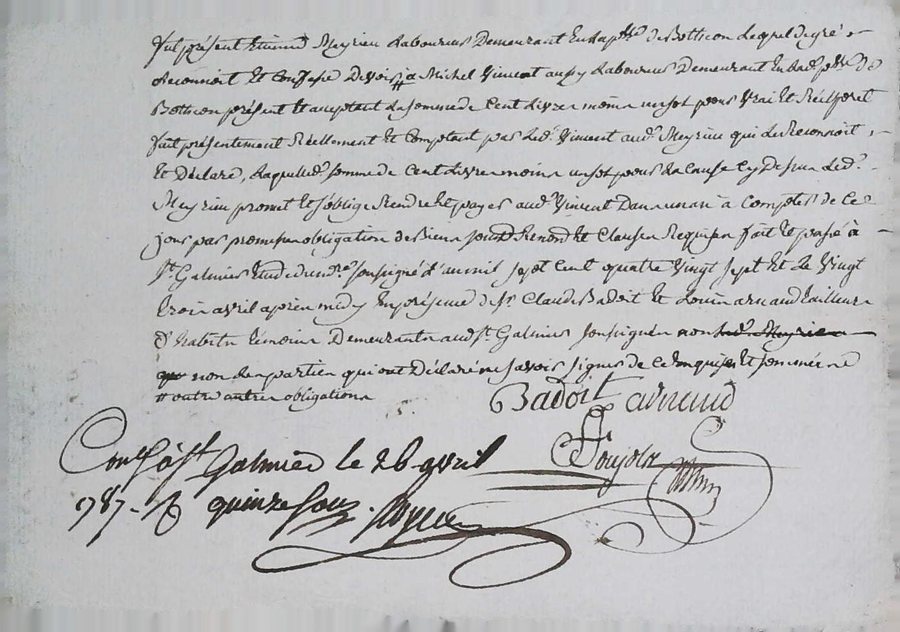 fut présent Etienne Meyrieu Laboureur Demeurant En la p.sse de Bottheon Lequel de gré
Reconnoit Et Confesse Devoir # a Michel Vincent aussy Laboureur Demeurant En lad. p.sse de
Bottheon présent Et acceptant La somme de Cent Livres moins un sol pour vrai Et Réel prêt
fait présentement Réellement Et Comptant par Led. Vincent aud. Meyrieu qui Le Reconnoit,
Et Déclare, Laquelled. somme de Cent Livres moins un sol pour La Cause Cy Dessus Led.
Meyrieu promet Et s'oblige Rendre Et payer aud. Vincent Dans un an a Compter de Ce
jour par promesse obligation de Biens Renond Et Clauses Requises fait Et passé à
St. Galmier Etude du n.re soussigné L'an mil sept Cent quatre Vingt sept Et Le Vingt
trois avril après midy En présence de Sr. Claude Badoit Et Louis arnaud tailleur
D'habits temoins Demeurants aud. St. Galmier soussignés non Led. Meyrieu
non Les parties qui ont Déclaré ne savoir signer de Ce Enquises Et sommées
# outre autres obligations
Badoit arnaud
Con.lé à St Galmier le 26 avril
1787 - R quinze sous.